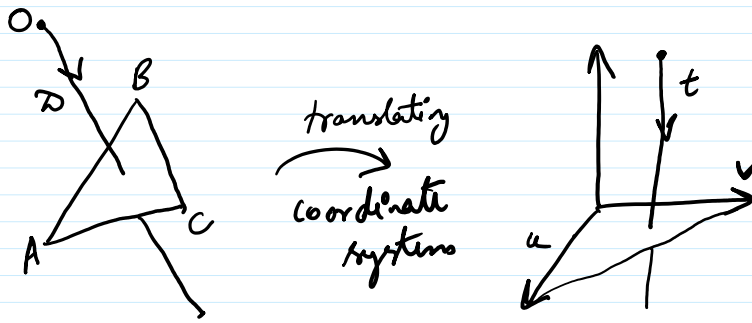 O
D
B
A
C
translating
coordinate
systems
t
u
v